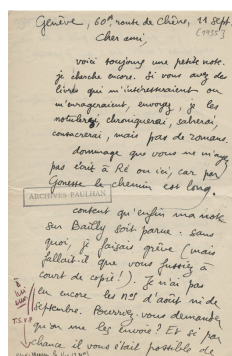 Genève, 60A, route de Chêne, 11 Sept
[1935]
Cher ami,
voici toujours une petite note.
je cherche encore. Si vous avez des
livres qui m'intéresseraient ou
m'enrageraient, envoyez, je les
notulerai, chroniquerai, sabrerai,
consacrerai, mais pas de romans.
dommage que vous ne m'ayez
pas écrit à Ré ou ici, car par
Gonesse le chemin est long.
ARCHIVES PAULHAN
content qu'enfin ma note
sur Bailly soit parue. Sans
quoi, je faisais grève (mais
fallait-il que vous fussiez à
court de copie!). Je n'ai pas
eu encore les nos d'août ni de
Septembre. Pourrez-vous demander
qu'on me les envoie? Et si par
chance il vous était possible de
T.S.V.P.